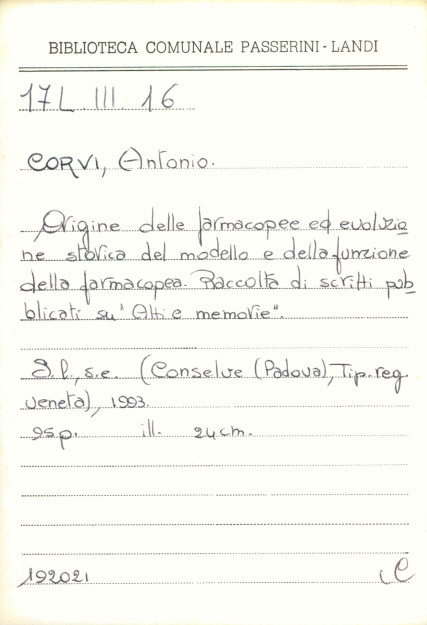 BIBLIOTECA COMUNALE PASSERINI-LANDI
17L.III.16
CORVI, Antonio.
Origine delle farmacopee ed evoluzio
ne storica del modello e della funzione
della farmacopea. Raccolta di scritti pub
blicati su "Atti e memorie".
S.l., s.e. (Conselve (Padova), Tip. reg.
veneta), 1993.
95p. ill. 24cm.
192021